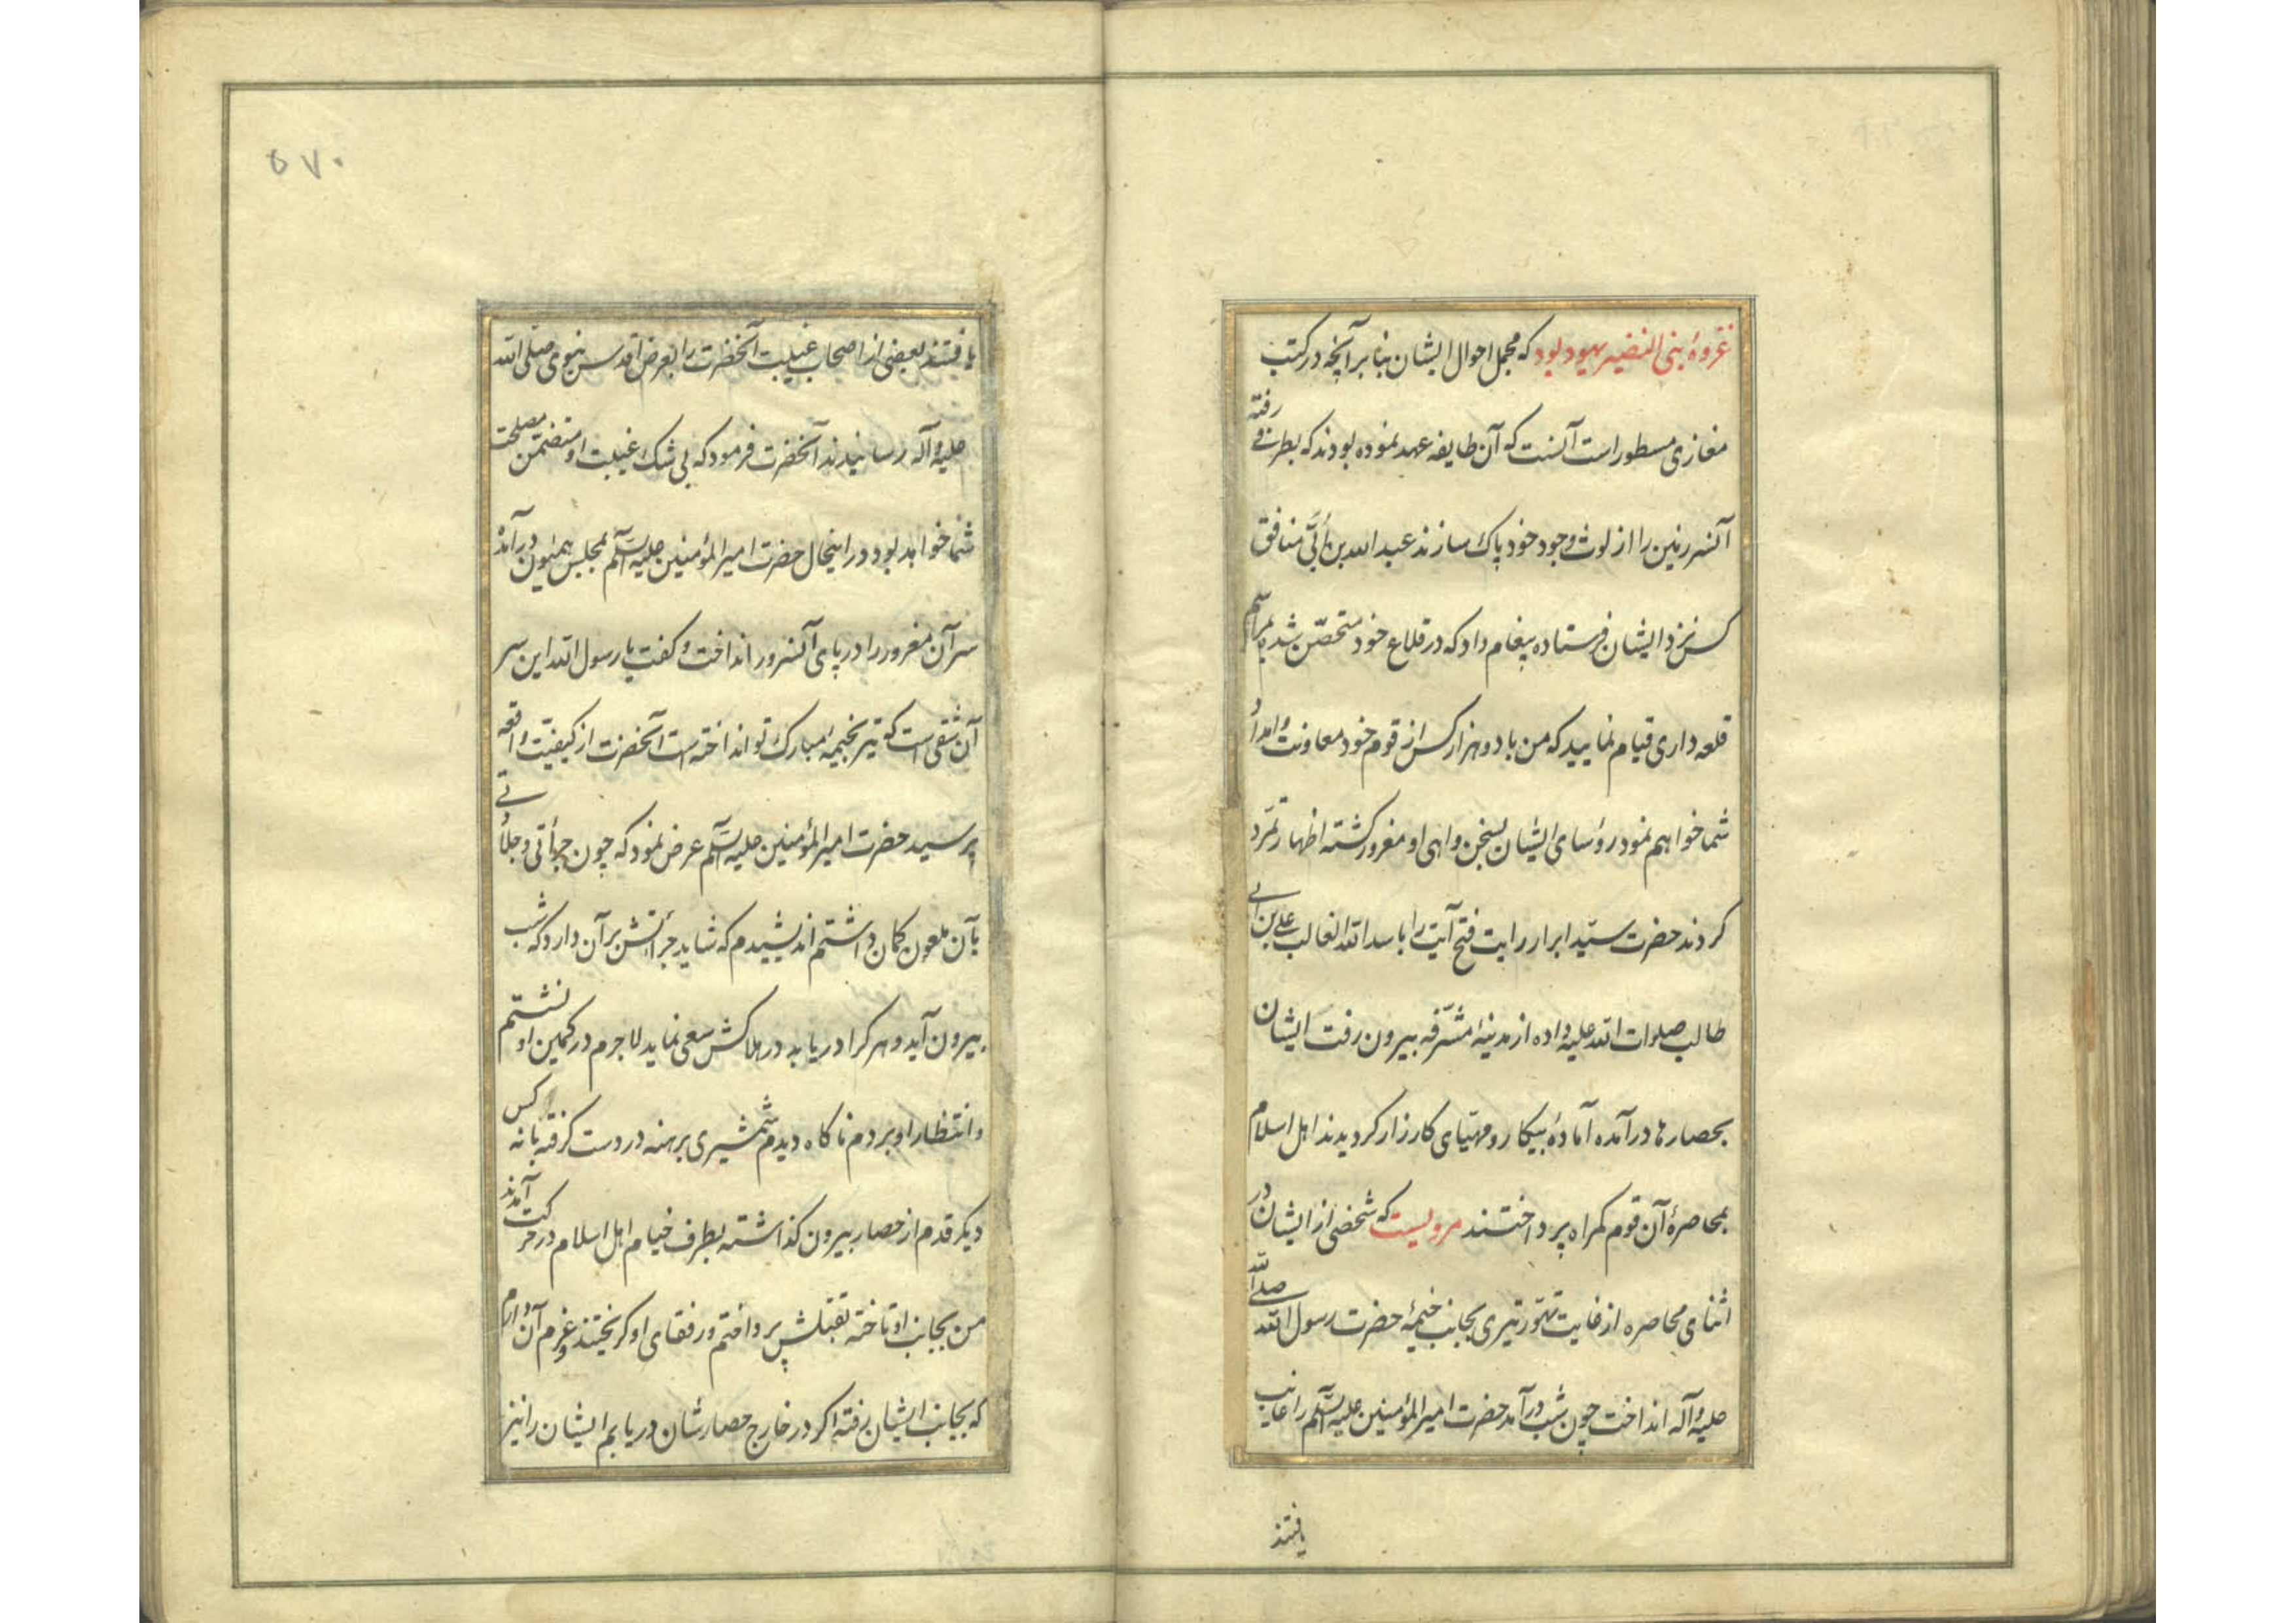 غزوهٔ بنی النضیر یهود بود که مجمل احوال ایشان بنا بر آنچه در کتب
مغازی مسطور است آنست که آن طایفه عهد نموده بودند که بطرفی رفته
آنسرزمین را از لوث وجود خود پاک سازند عبد الله بن اُبَیّ منافق
کس نزد ایشان فرستاده پیغام داد که در قلاع خود متحصّن شده بمراسم
قلعه داری قیام نمایید که من با دو هزار کس از قوم خود معاونت و امداد
شما خواهم نمود رؤسای ایشان بسخن واهی او مغرور کشته اظهار تمرّد
کردند حضرت سیّد ابرار رایت فتح آیت را باسد الله الغالب علی بن ابی
طالب صلوات الله علیه داده از مدینهٔ مشرّفه بیرون رفت ایشان
بحصارها درآمده آمادهٔ پیکار و مهیّای کارزار کردیدند اهل اسلام
بمحاصرهٔ آن قوم کمراه پرداختند مرویست که شخصی از ایشان در
اثنای محاصره از غایت تهوّر تیری بجانب خیمهٔ حضرت رسول الله صلی الله
علیه و آله انداخت چون شب درآمد حضرت امیر المؤمنین علیه السّلم را غایب
یافتند
۵۷۰
یافتند بعضی از اصحاب غیبت آنحضرت را بعرض اقدس نبوی صلی الله
علیه و آله رسانیدند آنحضرت فرمود که بی شک غیبت او متضمّن مصلحت
شما خواهد بود در اینحال حضرت امیر المؤمنین علیه السّلم بمجلس همیون درآمد
سر آن مغرور را در پای آنسرور انداخت و کفت یا رسول الله این سر
آن شقی است که تیر بخیمهٔ مبارک تو انداخته است آنحضرت از کیفیّت واقعه
پرسید حضرت امیر المؤمنین علیه السّلم عرض نمود که چون جرأتی و جلادتی
بآن ملعون کمان داشتم اندیشیدم که شاید جرأتش بر آن دارد که شب
بیرون آید و هر کرا دریابد در هلاکش سعی نماید لاجرم در کمین او نشستم
و انتظار او بردم ناکاه دیدم شمشیری برهنه در دست کرفته با نه کس
دیکر قدم از حصار بیرون کذاشته بطرف خیام اهل اسلام در حرکت آمدند
من بجانب او تاخته بقتلش پرداختم و رفقای او کریختند و عزم آن دارم
که بجانب ایشان رفته اکر در خارج حصارشان دریابم ایشان را نیز